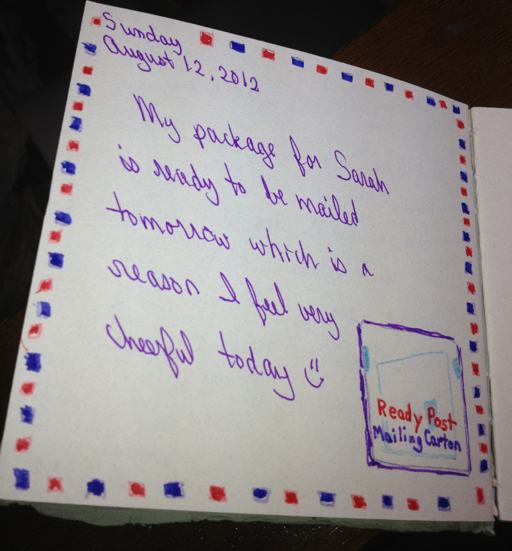 Sunday
August 12, 2012
My package for Sarah
is ready to be mailed
tomorrow which is a
reason I feel very
cheerful today
Ready Post
Mailing Carton